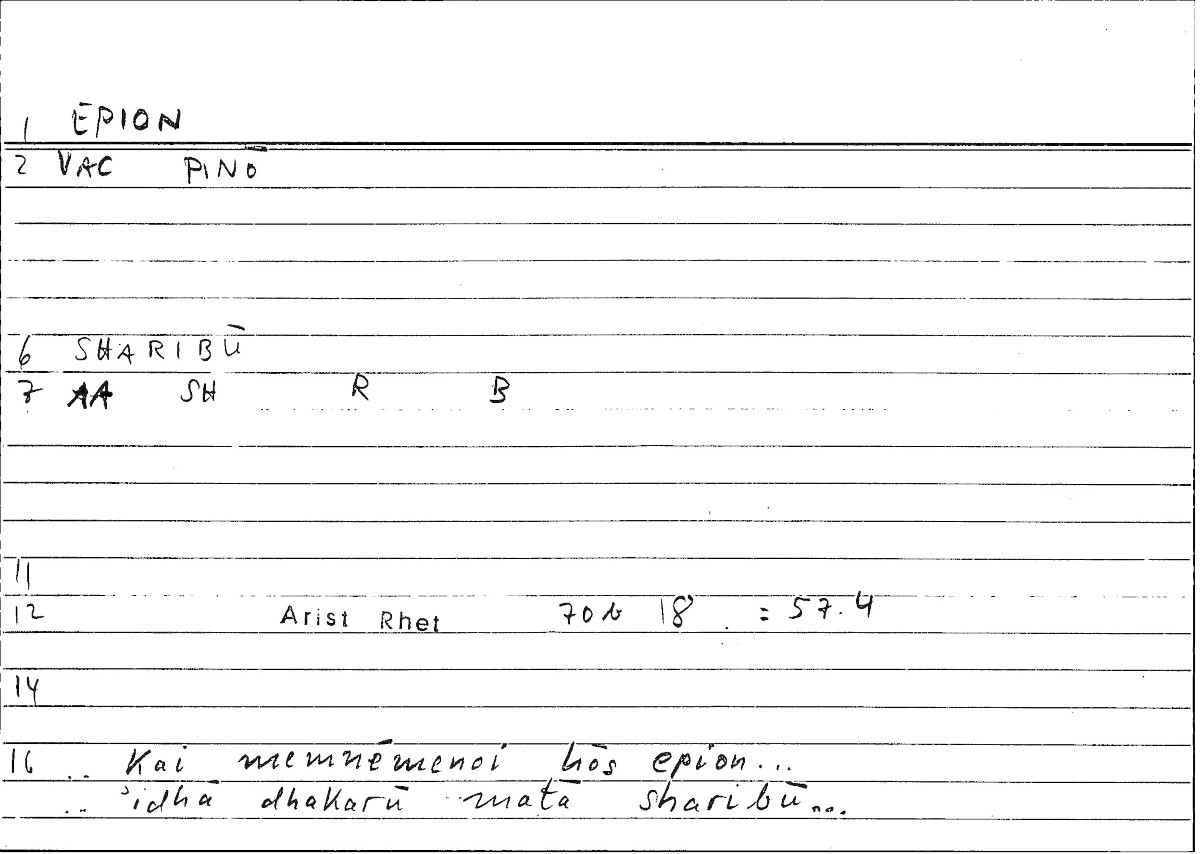 1 EPION
2 VAC PINŌ
6 SHARIBŪ
7 AA SH R B
11
12 Arist Rhet 70b 18 = 57.4
14
16 .. Kai memnēmenoi hōs epion...
.. 'idhā dhakarū matā sharibū...